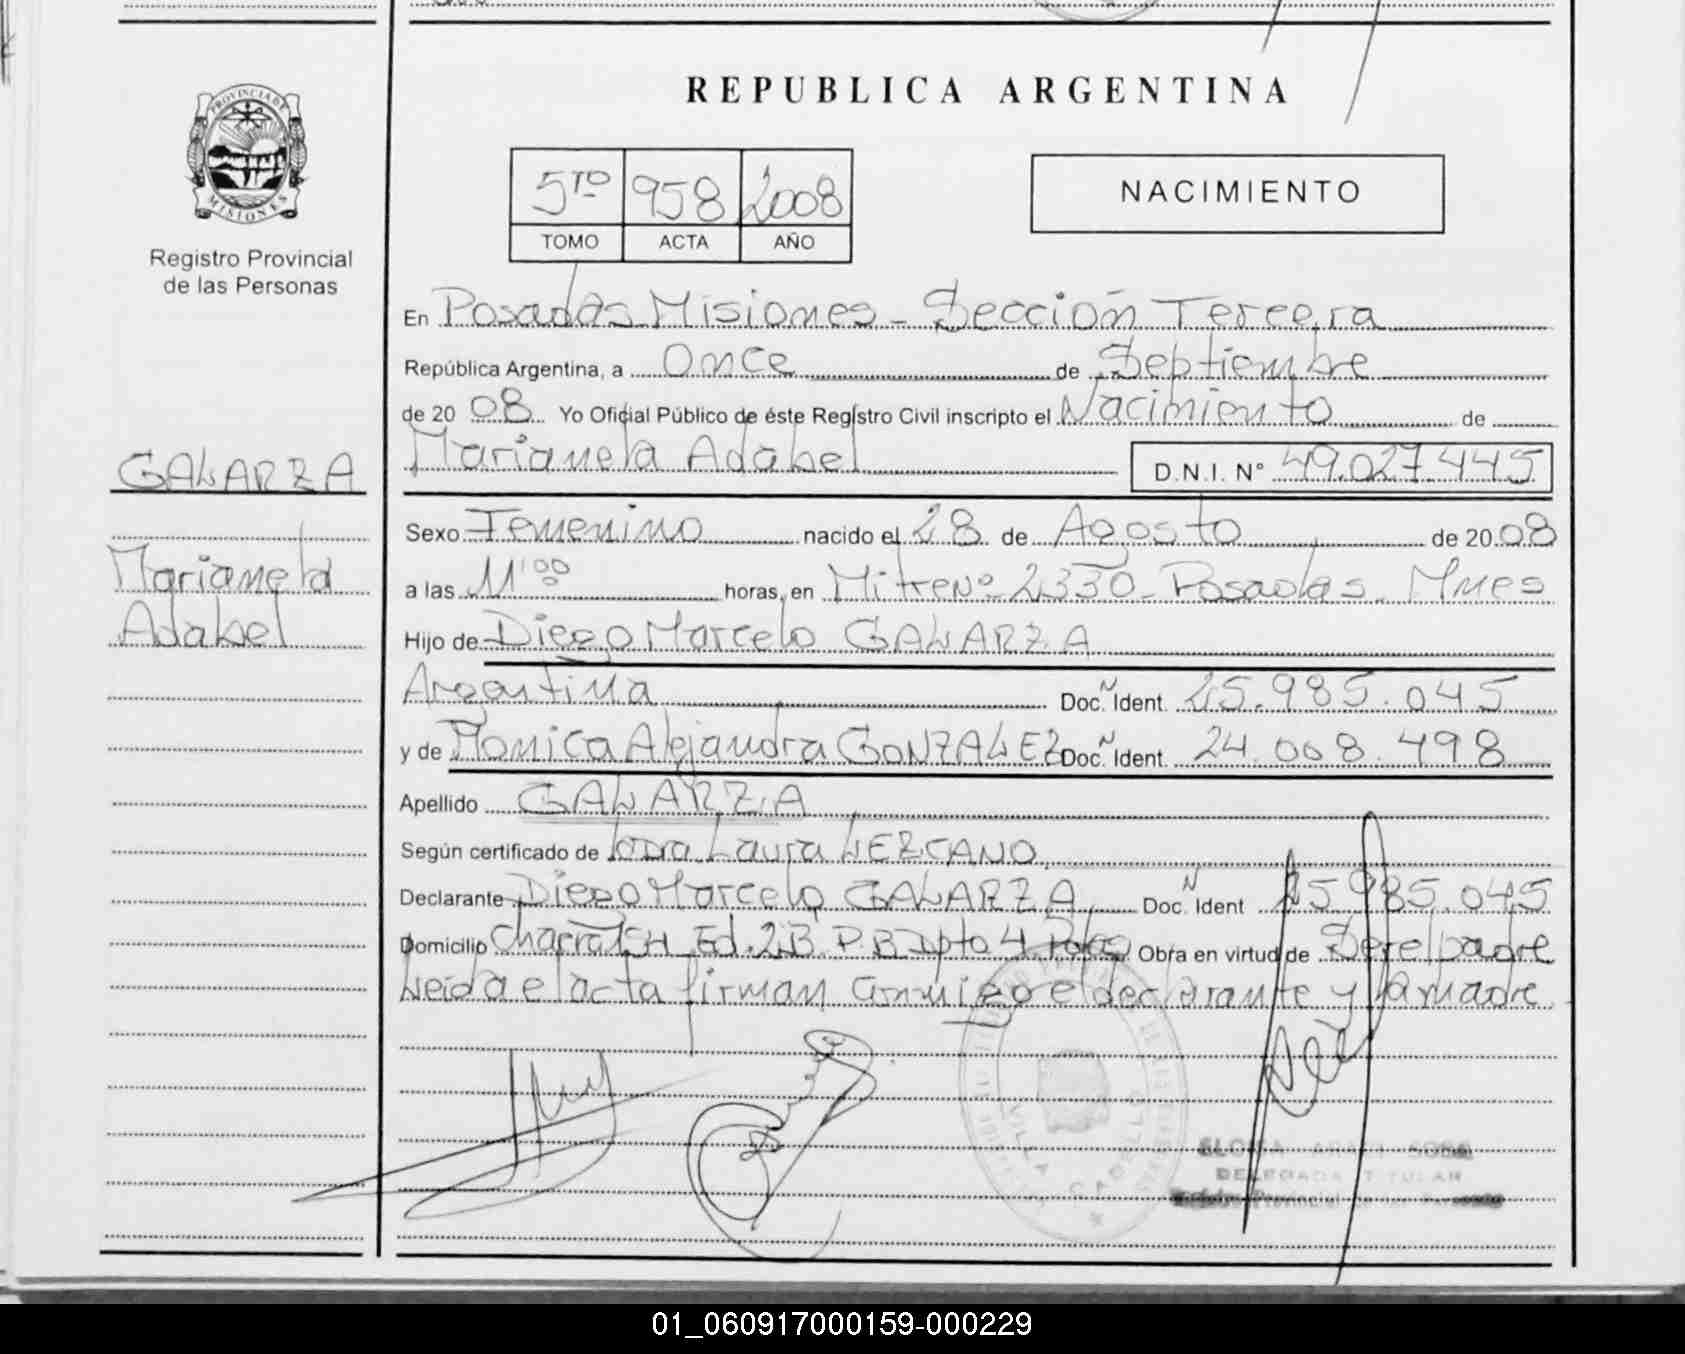 REPUBLICA ARGENTINA
PROVINCIA DE
MISIONES
Registro Provincial
de las Personas
5TO 958 2008
TOMO ACTA AÑO
NACIMIENTO
En Posadas Misiones - Sección Tercera
República Argentina, a Once de Septiembre
de 20 08 Yo Oficial Público de éste Registro Civil inscripto el Nacimiento de
Marianela Adabel D.N.I. Nº 49.027.445
GALARZA
Marianela
Adabel
Sexo Femenino nacido el 28 de Agosto de 20 08
a las 11:00 horas, en Mitre Nº 2330 - Posadas - Mnes
Hijo de Diego Marcelo GALARZA
Argentina Doc. N Ident. 25.985.045
y de Monica Alejandra GONZALEZ Doc. N Ident. 24.008.498
Apellido GALARZA
Según certificado de Laura LEZCANO
Declarante Diego Marcelo GALARZA Doc. N Ident 25.985.045
Domicilio Chacra Ed. 2B. P.B Dpto 4 Obra en virtud de Ser el padre
Leida el acta firman conmigo el declarante y la madre
VILLA CABELLO
DELEGADA TITULAR
Provincial de las Personas
01_060917000159-000229